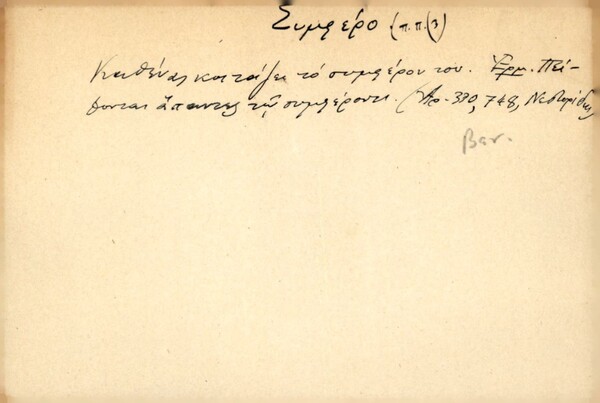 Συμφέρο (π.π.(3)
Καθένας κοιτάζει τό συμφέρον του. Ἑρμ. Πεί-
θονται ἅπαντες τῷ συμφέροντι. (Ἀρ. 330, 748, Νεστορίδης
Βεν.